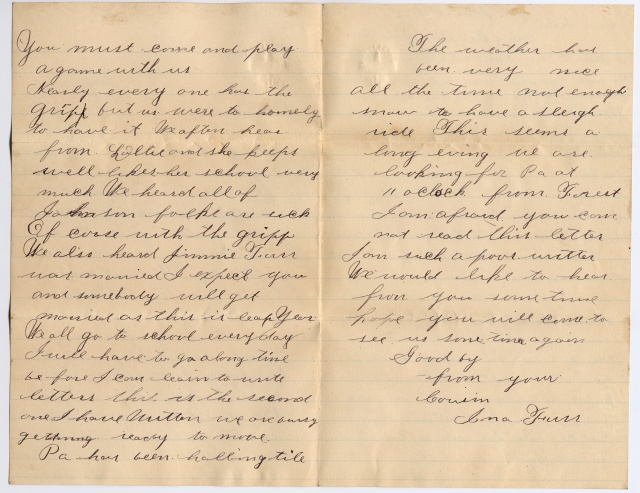 You must come and play
a game with us
Nearly every one has the
gripp but us were to homely
to have it We often hear
from Lollie and she keeps
well likes her school very
much We heard all of
Johnson folks are sick
Of coose with the gripp
We also heard Jimmie Furr
was married I expect you
and somebody will get
married as this is leap Year
We all go to school everyday
I will have to go along time
be fore I can learn to write
letters this is the second
one I have Written we are busy
getting ready to move.
Pa has been halling tile
The weather has
been very nice
all the time not enough
snow to have a sleigh
ride This seems a
long evning we are
looking for Pa at
11 oclock from Forest
I am afraid you can
not read this letter
I am such a poor writter
We would like to hear
from you some time
hope you will come to
see us some time again
Good by
from your
Cousin
Ena Furr